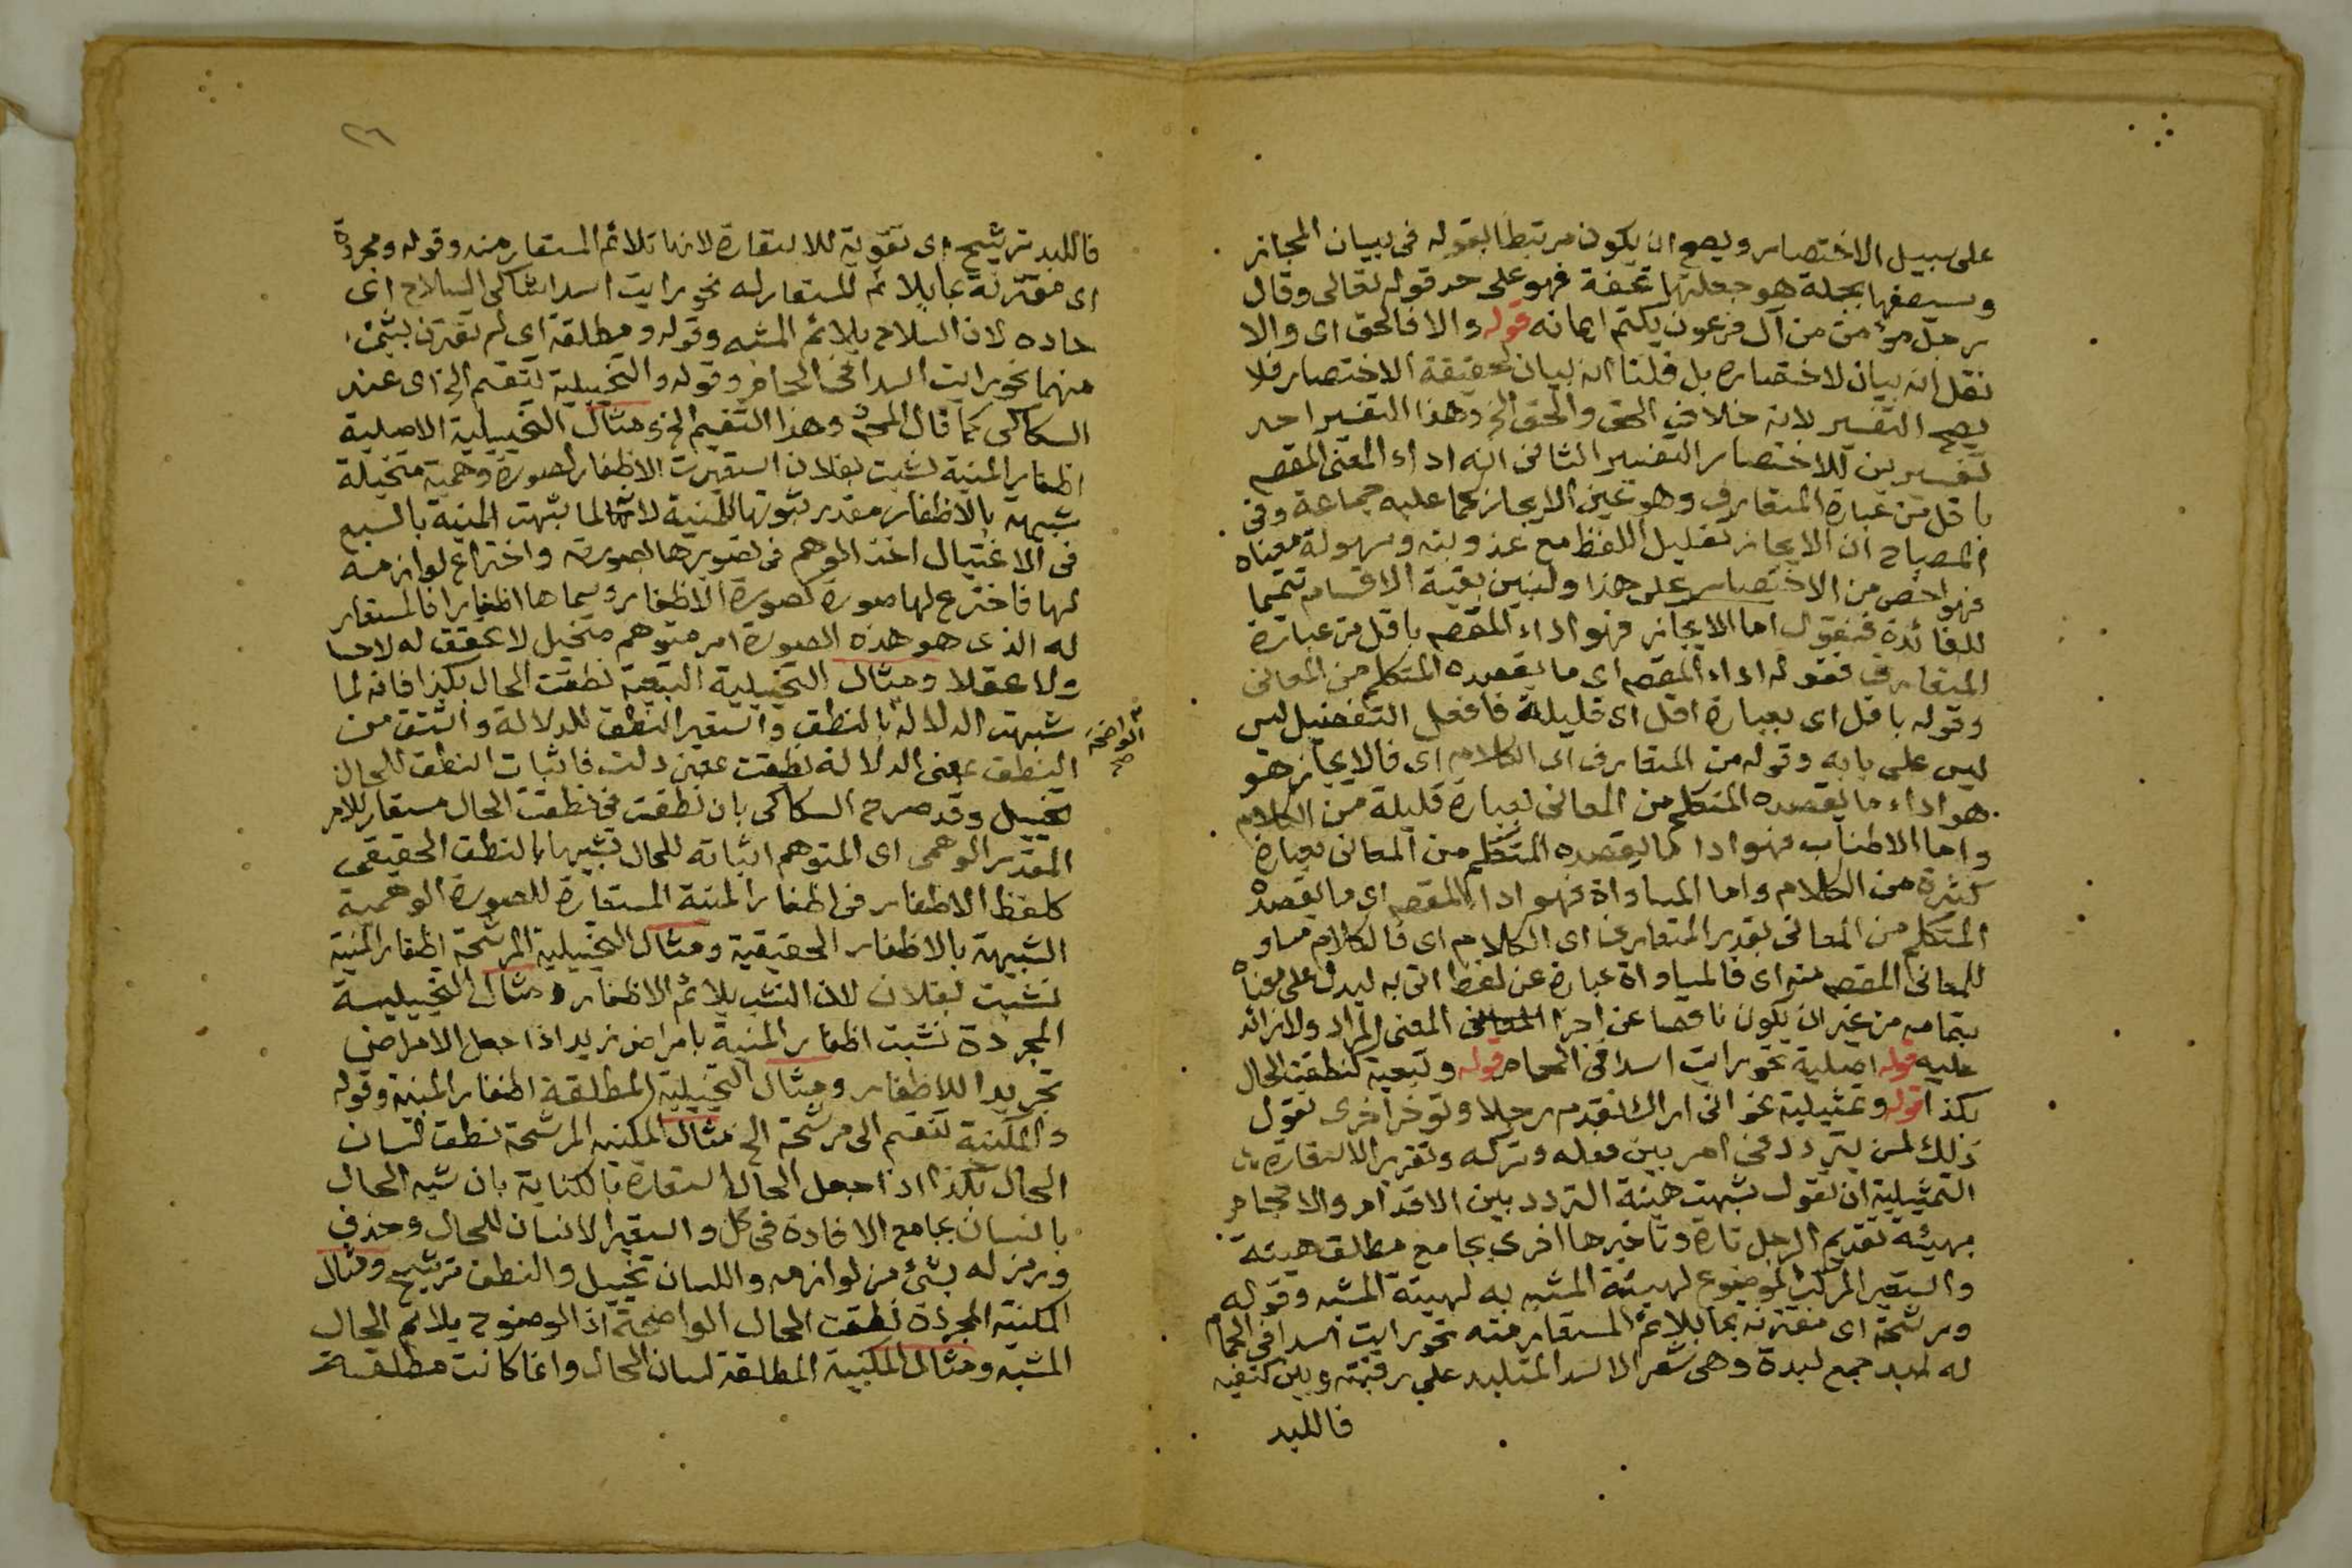 على سبيل الاختصار ويصح ان يكون مرتبطا بقوله فى بيان المجاز
وسيصفها بجملة هو جعلتها تحفة فهو على حد قوله تعالى وقال
رجل مؤمن من آل فرعون يكتم ايمانه قوله والا فالحق اى والا
نقل انه بيان لاختصاره بل قلنا انه بيان لحقيقة الاختصار فلا
يصح التفسير لانه خلاف الحق والحق الخ وهذا التفسير احد
تفسيرين للاختصار التفسير الثانى انه اداء المعنى المقصـ
باقل من عبارة المتعارف وهو عين الايجاز كما عليه جماعة وفى
المصباح ان الايجاز تقليل اللفظ مع عذوبته وسهولة معناه
فهو اخص من الاختصار على هذا ولنبين بقية الاقسام تتميما
للفائدة فنقول اما الايجاز فهو اداء المقصـ باقل من عبارة
المتعارف فقوله اداء المقصـ اى ما يقصده المتكلم من المعانى
وقوله باقل اى بعبارة اقل اى قليلة فافعل التفضيل ليس
ليس على بابه وقوله من المتعارف اى الكلام اى فالايجاز هو
هو اداء ما يقصده المتكلم من المعانى بعبارة قليلة من الكلام
واما الاطناب فهو ادا ما يقصده المتكلم من المعانى بعبارة
كثيرة من الكلام واما المساواة فهو ادا المقصـ اى ما يقصده
المتكلم من المعانى بقدر المتعارف اى الكلام اى فالكلام مساو
للمعانى المقصـ منه اى فالمساواة عبارة عن لفظ اتى به ليدل على معناه
بتمامه من غير ان يكون ناقصا عن اجزا المعنى المراد ولا زائد
عليه قوله اصلية نحو رايت اسدا فى الحمام قوله وتبعية كنطقت الحال
بكذا قوله وتمثيلية نحو انى اراك تقدم رجلا وتوخر اخرى تقول
ذلك لمن يتردد فى امر بين فعله وتركه وتقرير الاستعارة
التمثيلية ان تقول شبهت هيئة التردد بين الاقدام والاحجام
بهيئة تقديم الرجل تارة وتاخيرها اخرى بجامع مطلق هيئة
واستعير المركب الموضوع لهيئة المشبه به لهيئة المشبه وقوله
ومرشحة اى مقترنة بما يلائم المستعار منه نحو رايت اسدا فى الحمام
له لبد جمع لبدة وهى شعر الاسد المتلبد على رقبته وبين كتفيه
فاللبد
٢٦
فاللبد ترشيح اى تقوية للاستعارة لانها تلائم المستعار منه وقوله ومجردة
اى مقترنة بما يلائم المستعار له نحو رايت اسدا شاكى السلاح اى
حاده لان السلاح يلائم المشبه وقوله ومطلقة اى لم تقترن بشئ
منهما نحو رايت اسدا فى الحمام وقوله والتخييلية تنقسم الخ اى عند
السكاكى كما قال وهذا التقسيم الخ مثال التخييلية الاصلية
اظفار المنية نشبت بفلان استعيرت الاظفار لصورة وهمية متخيلة
شبيهة بالاظفار مقدر ثبوتها للمنية لانها لما شبهت المنية بالسبع
فى الاغتيال اخذ الوهم فى تصويرها بصورته واختراع لوازمه
لها فاخترع لها صورة كصورة الاظفار وسماها اظفارا فالمستعار
له الذى هو هذه الصورة امر متوهم متخيل لا تحقق له لا حسا
ولا عقلا ومثال التخييلية التبعية نطقت الحال بكذا فانه لما
شبهت الدلالة بالنطق واستعير النطق للدلالة واشتق من
الواضحة صح
النطق بمعنى الدلالة نطقت بمعنى دلت فاثبات النطق للحال
تخييل وقد صرح السكاكى بان نطقت فى نطقت الحال مستعار للامر
المقدر الوهمى اى المتوهم اثباته للحال تشبيها بالنطق الحقيقى
كلفظ الاظفار فى اظفار المنية المستعارة للصورة الوهمية
الشبيهة بالاظفار الحقيقية ومثال التخييلية المرشحة اظفار المنية
نشبت بفلان لان النشب يلائم الاظفار ومثال التخييلية
المجردة نشبت اظفار المنية بامراض زيد اذا جعل الامراض
تجريدا للاظفار ومثال التخييلية المطلقة اظفار المنية وقوله
والمكنية تنقسم الى مرشحة الخ مثال المكنية المرشحة نطق لسان
الحال بكذا اذا جعل الحال استعارة بالكناية بان شبه الحال
بانسان بجامع الافادة فى كل واستعير الانسان للحال وحذف
ورمز له بشئ من لوازمه واللسان تخييل والنطق ترشيح ومثال
المكنية المجردة نطقت الحال الواضحة اذ الوضوح يلائم الحال
المشبه ومثال المكنية المطلقة لسان الحال وانما كانت مطلقة